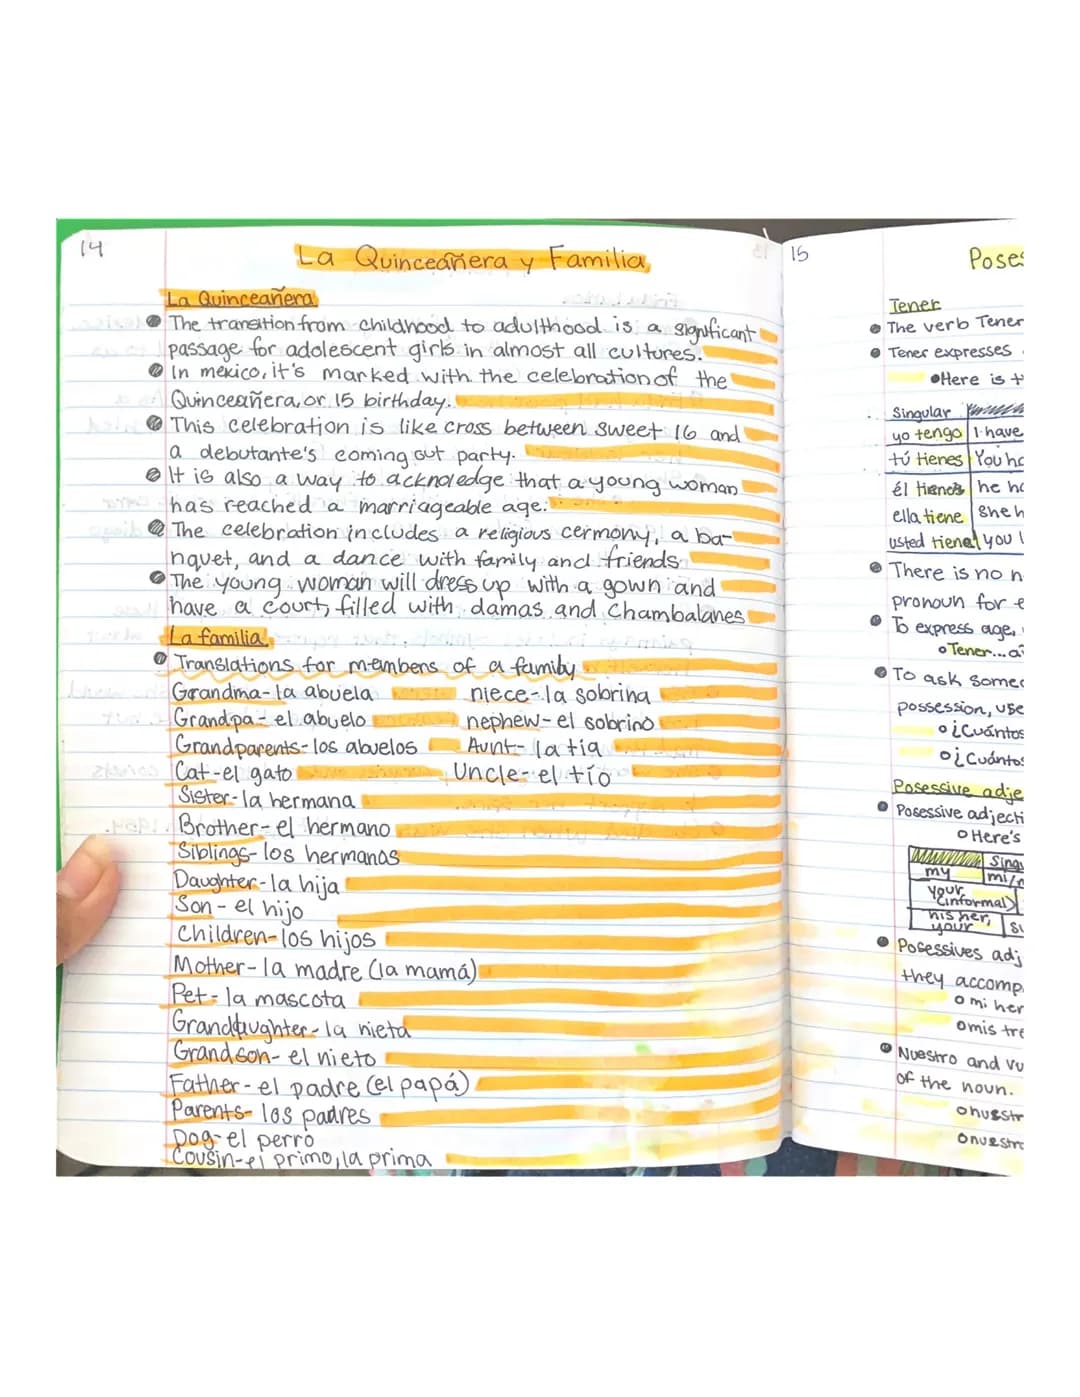 14
La Quinceañera y Familia
La Quinceañera
The transition from childhood to adulthood is a significant
passage for adolescent girls in almost all cultures.
In mexico, it's marked with the celebration of the
Quinceañera, or 15 birthday.
This celebration is like cross between sweet 16 and
a debutante's coming out party.
It is also a way to acknoledge that a young woman
has reached a marriageable age.
The celebration includes a religious cermony, a ba-
nquet, and a dance with family and friends
The young woman will dress up with a gown and
have a court, filled with damas and Chambalanes
La familia
Translations for members of a family
Grandma- la abuela niece- la sobrina
Grandpa- el abuelo nephew- el sobrino
Grandparents- los abuelos Aunt- la tia
Cat- el gato Uncle- el tío
Sister- la hermana
Brother- el hermano
Siblings- los hermanos
Daughter- la hija
Son- el hijo
Children- los hijos
Mother- la madre (la mamá)
Pet- la mascota
Granddaughter- la nieta
Grandson- el nieto
Father- el padre (el papá)
Parents- los padres
Dog- el perro
Cousin- el primo, la prima
15
Poses
Tener
The verb Tener
Tener expresses
Here is
Singular
yo tengo I have
tú tienes You
él tienes he
ella tiene she
usted tiene you
There is no
pronoun for
To express age,
Tener...
To ask
possession, use
¿Cuántos
¿Cuántos
Posessive adje
Posessive adjecti
Here's
Singu
my mi/
your
(informal)
his her,
your
Posessives adj
they accomp
mi her
mis tre
Nuestro and vu
of the noun.
nuestr
nuestro